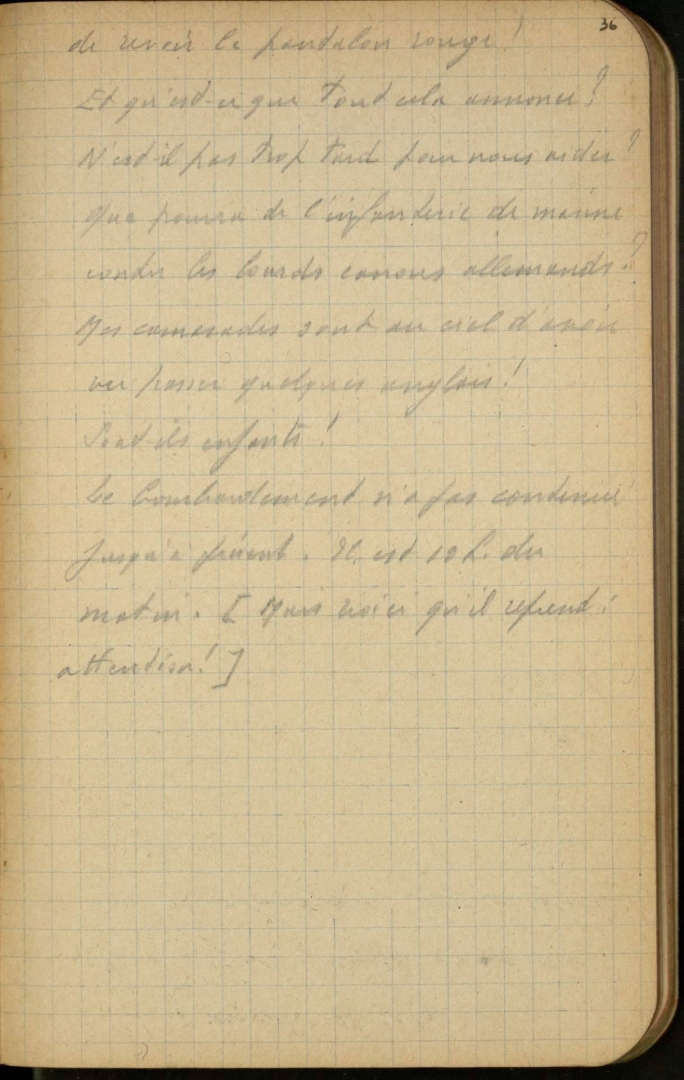 36
de revoir le pantalon rouge !
Et qu'est-ce que tout cela annonce ?
N'est-il pas trop tard pour nous aider ?
Que pourra de l'infanterie de marine
contre les lourds canons allemands ?
Mes camarades sont au ciel d'avoir
vu passer quelques anglais !
Sont-ils enfants !
Le bombardement n'a pas continué
jusqu'à présent. Il est 10 h. du
matin. [ Mais voici qu'il reprend :
attention ! ]